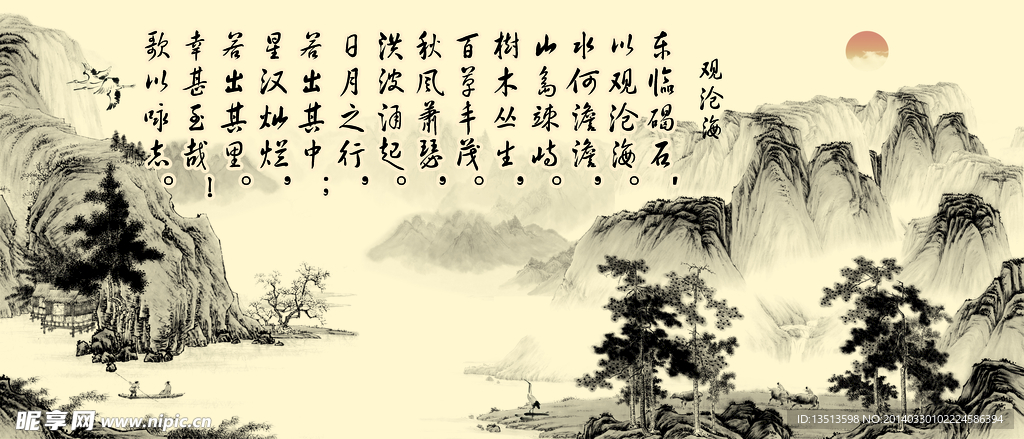 观沧海
东临碣石，
以观沧海。
水何澹澹，
山岛竦峙。
树木丛生，
百草丰茂。
秋风萧瑟，
洪波涌起。
日月之行，
若出其中；
星汉灿烂，
若出其里。
幸甚至哉！
歌以咏志。
昵享网 www.nipic.cn
ID:13513598 NO:20140330102224586394